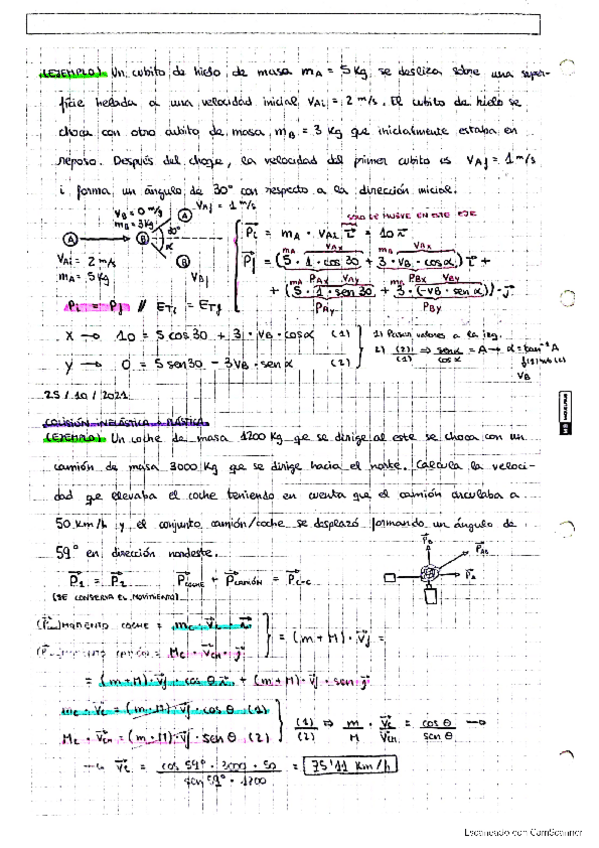 (EJEMPLO) Un cubito de hielo de masa mA = 5 Kg se desliza sobre una super-
ficie helada a una velocidad inicial VAi = 2 m/s. El cubito de hielo se
choca con otro cubito de masa mB = 3 Kg que inicialmente estaba en
reposo. Después del choque, la velocidad del primer cubito es VAf = 1 m/s
i forma un ángulo de 30° con respecto a la dirección inicial.
VB = 0 m/s
mB = 3Kg
A
VAf = 1 m/s
30°
α
A
B
B
VAi = 2 m/s
mA = 5 Kg
VBf
SOLO SE MUEVE EN ESTE EJE
Pi = mA · VAi i = 10 i
mA VAx mB VBx
Pf = (5 · 1 · cos 30 + 3 · VB · cosα) i +
PAx VAy PBx VBy
+ (5 · 1 · sen 30 + 3 · (-VB · senα)) · j
PAy PBy
Pi = Pf // ETi = ETf
X → 10 = 5 cos 30 + 3 · VB · cosα (1)
Y → 0 = 5 sen 30 - 3 VB · senα (2)
1) Pasar valores a la izq.
2) (2)/(1) ⇒ senα/cosα = A → α = tan⁻¹ A
VB
25 / 10 / 2021
COLISIÓN INELÁSTICA PLÁSTICA
(EJEMPLO) Un coche de masa 1200 Kg qe se dirige al este se choca con un
camión de masa 3000 Kg qe se dirige hacia el norte. Calcula la veloci-
dad qe llevaba el coche teniendo en cuenta que el camión circulaba a
50 Km/h y el conjunto camión/coche se desplazó formando un ángulo de
59° en dirección nordeste.
PB
PAB
PA
P1 = P2 PCOCHE + PCAMIÓN = PC-C
(SE CONSERVA EL MOVIMIENTO)
momento coche = mc · Vc · i
Mc · VCM · j
= (m + M) · Vf =
= (m + M) · Vf · cos θ i + (m + M) · Vf · sen j
mc · Vc = (m · M) · Vf · cos θ (1)
Mc · VCM = (m · M) · Vf · sen θ (2)
(1)/(2) ⇒ m/M · Vc/VCM = cos θ/sen θ →
→ Vc = cos 59° · 3000 · 50 / sen 59° · 1200 = 75'11 Km/h
Escaneado con CamScanner